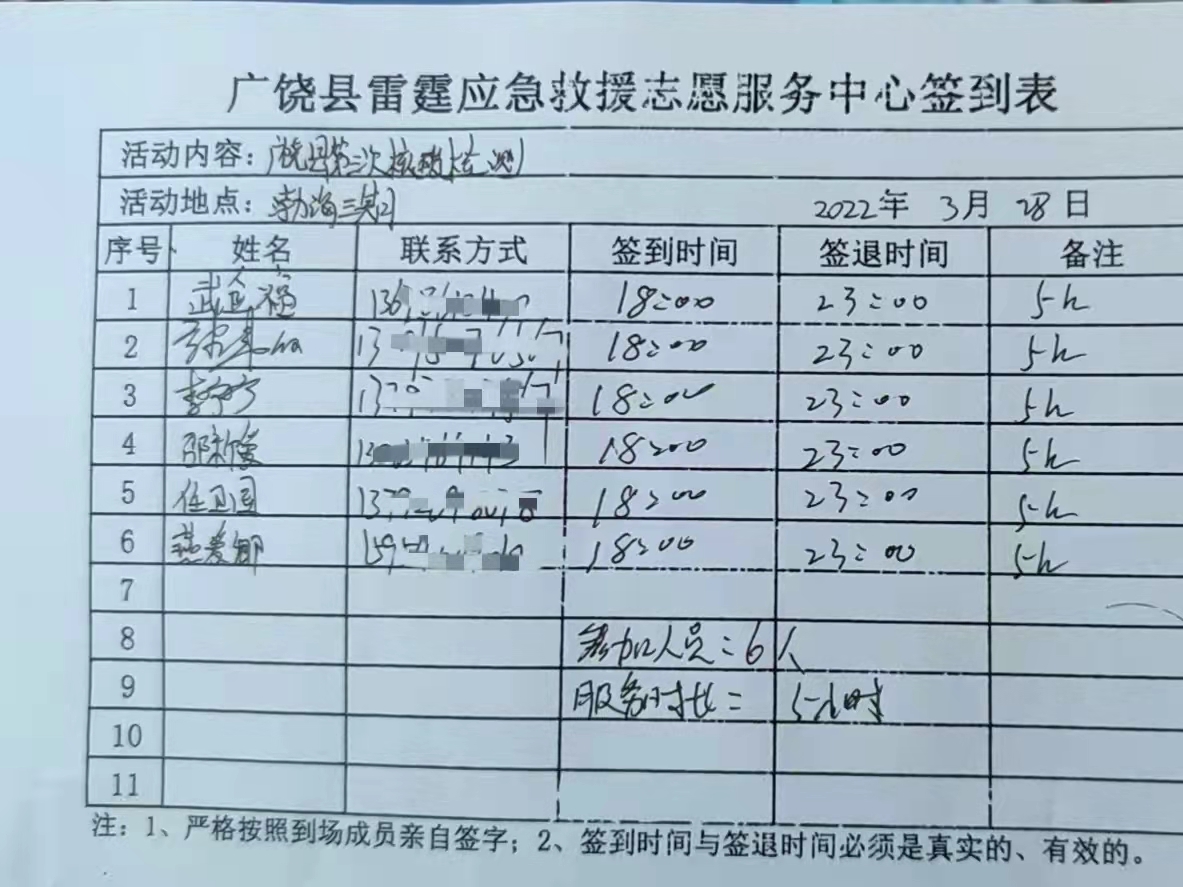 广饶县雷霆应急救援志愿服务中心签到表
活动内容：广饶县第三次核酸检测
活动地点：渤海三期 2022年 3月 28日
序号 姓名 联系方式 签到时间 签退时间 备注
1 18:00 23:00 5h
2 18:00 23:00 5h
3 18:00 23:00 5h
4 18:00 23:00 5h
5 任卫国 18:00 23:00 5h
6 燕爱娜 18:00 23:00 5h
7
8 参加人员：6人
9 服务时长：5小时
10
11
注：1、严格按照到场成员亲自签字；2、签到时间与签退时间必须是真实的、有效的。